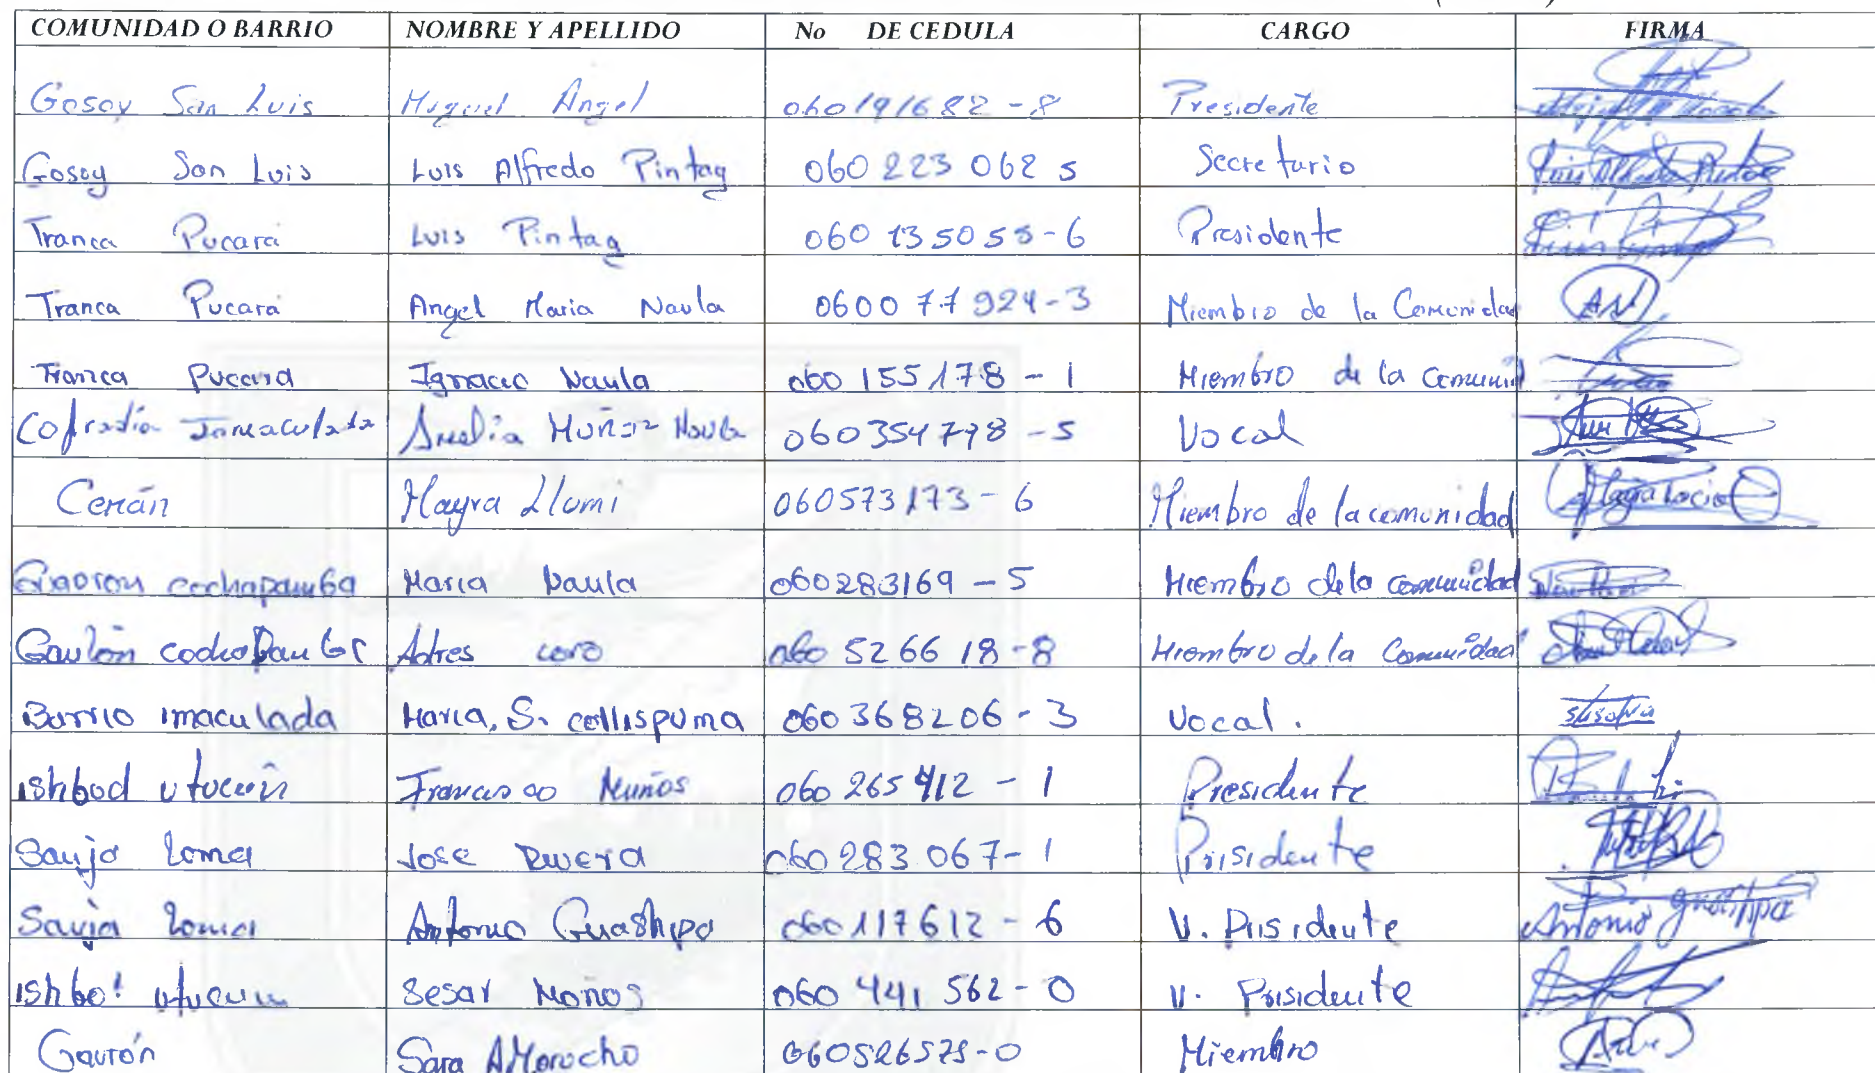 COMUNIDAD O BARRIO NOMBRE Y APELLIDO No DE CEDULA CARGO FIRMA
Gosoy San Luis Miguel Angel 060191682-8 Presidente
Gosoy San Luis Luis Alfredo Pintag 060 223 062 5 Secretario
Tranca Pucara Luis Pintag 060 135055-6 Presidente
Tranca Pucara Angel Maria Naula 0600 77 924-3 Miembro de la Comunidad AN
Tranca Pucara Ignacio Naula 060 155 178-1 Miembro de la Comunid
Cofradia Inmaculada Amelia Muñoz Naula 060354778-5 Vocal
Cenán Mayra Llumi 060573173-6 Miembro de la comunidad Mayra Rocio
cochapamba Maria Naula 060283169-5 Miembro de la comunidad
Adres coro 060 5266 18-8 Miembro de la Comunidad
Barrio imaculada Maria. S. 060 368206-3 Vocal.
ishbod utucun Muños 060 265 412-1 Presidente
loma Jose 060 283 067-1 Prisidente
loma Antonio Guashpa 060 117612-6 V. Prisidente Antonio
utucun Sesar Moños 060 441 562-0 V. Prisidente
Gaurón Sara A Morocho 060526575-0 Miembro